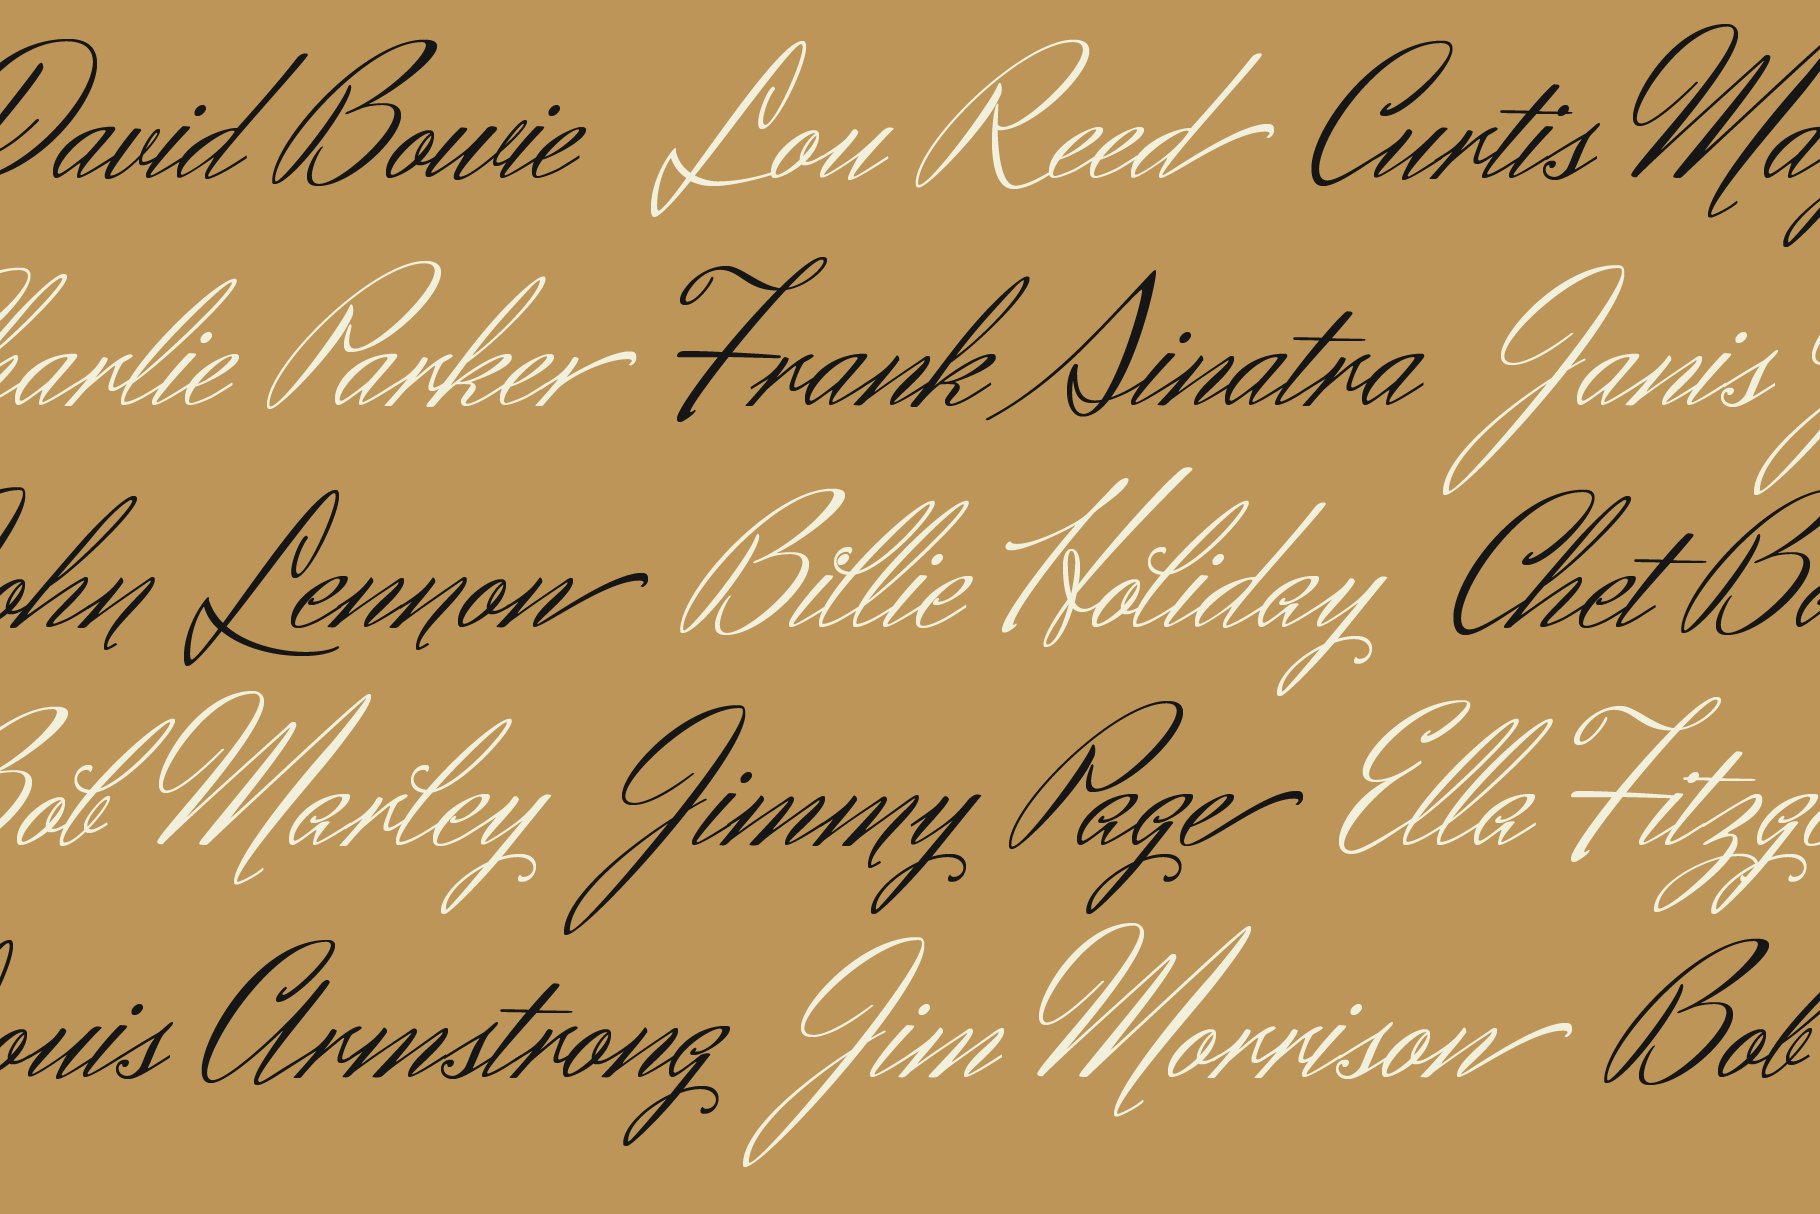 David Bowie Lou Reed Curtis May
harlie Parker Frank Sinatra Janis J
ohn Lennon Billie Holiday Chet Ba
Bob Marley Jimmy Page Ella Fitzge
ouis Armstrong Jim Morrison Bob